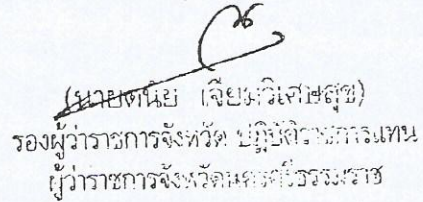 (นายดนัย เจียมวิเศษสุข)
รองผู้ว่าราชการจังหวัด ปฏิบัติราชการแทน
ผู้ว่าราชการจังหวัดนครศรีธรรมราช